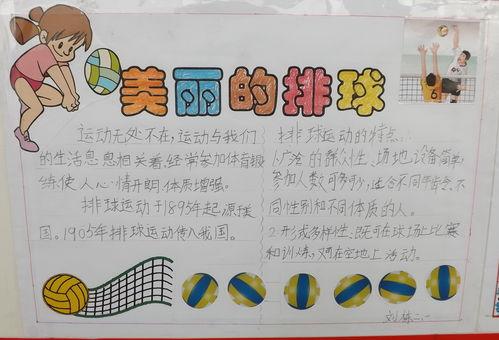 美丽的排球
运动无处不在,运动与我们
的生活息息相关着,经常参加体育锻
炼使人心情开朗,体质增强。
排球运动于1895年起源美
国。1905年排球运动传入我国。
排球运动的特点:
1.广泛的群众性、场地、设备简单,
参加人数可多可少,适合不同年龄、不
同性别和不同体质的人。
2.形式多样性、既可在球场上比赛
和训练,又可在空地上活动。
刘栋二.一